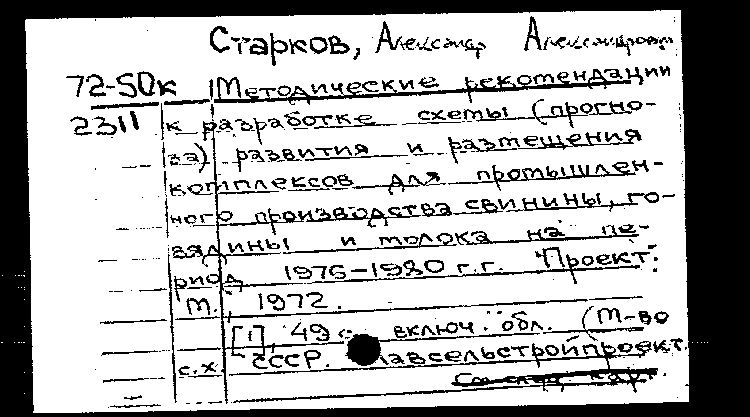 Старков, Александр Александрович
72-50к Методические рекомендации
2311 к разработке схемы (прогно-
за) развития и размещения
комплексов для промышлен-
ного производства свинины, го-
вядины и молока на пе-
риод 1976-1980 г.г. Проект.
М., 1972.
[1], 49 с. включ. обл. (М-во
с.х. СССР. авсельстройпроект.